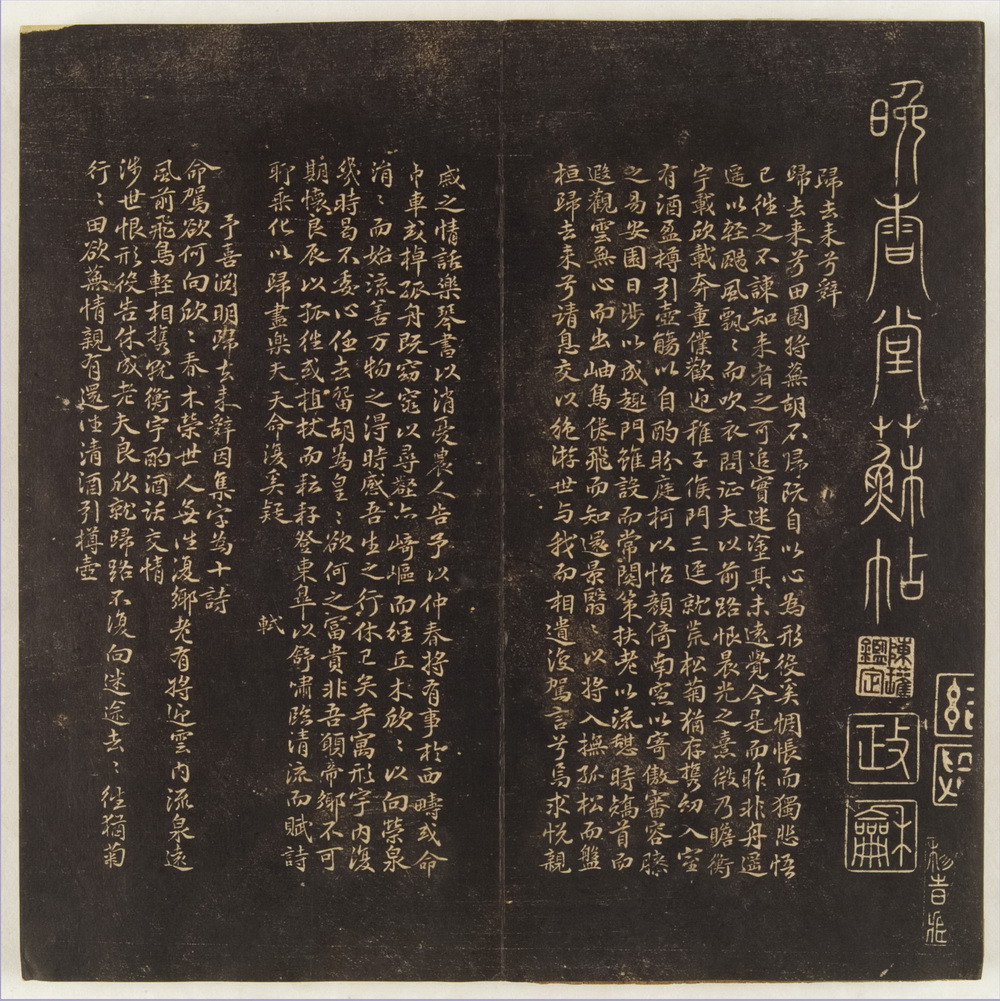 晚香堂蘇帖
政龢
歸去来兮辭
歸去来兮田園將蕪胡不归既自以心為形役奚惆悵而獨悲悟
已徃之不諫知来者之可追實迷塗其未遠覺今是而昨非舟遥
遥以輕颺風飄〻而吹衣問征夫以前路恨晨光之熹微乃瞻衡
宇載欣載奔童僕歡迎稚子候門三逕就荒松菊猶存携幼入室
有酒盈樽引壺觴以自酌眄庭柯以怡顔倚南窓以寄傲審容膝
之易安園日涉以成趣門雖設而常關策扶老以流憩時矯首而
遐觀雲無心而出岫鳥倦飛而知還景翳〻以將入撫孤松而盤
桓歸去来兮请息交以絶游世与我而相遺復駕言兮焉求悦親
戚之情話樂琴書以消憂農人告予以仲春將有事於西疇或命
巾車或棹孤舟既窈窕以尋壑亦崎嶇而經丘木欣〻以向榮泉
涓〻而始流善万物之得時感吾生之行休已矣乎寓形宇内復
幾時曷不委心任去留胡為皇〻欲何之冨貴非吾願帝鄉不可
期懷良辰以孤徃或植杖而耘耔登東皋以舒嘯臨清流而賦詩
聊乗化以歸盡樂夫天命復奚疑
軾
予喜淵明歸去来辭因集字為十詩
命駕欲何向欣〻春木榮世人無徃復鄉老有將迎雲内流泉遠
風前飛鳥輕相携就衡宇酌酒話交情
涉世恨形役告休成老夫良欣就歸路不復向迷途去〻徃猶菊
行〻田欲蕪情親有還徃清酒引樽壺